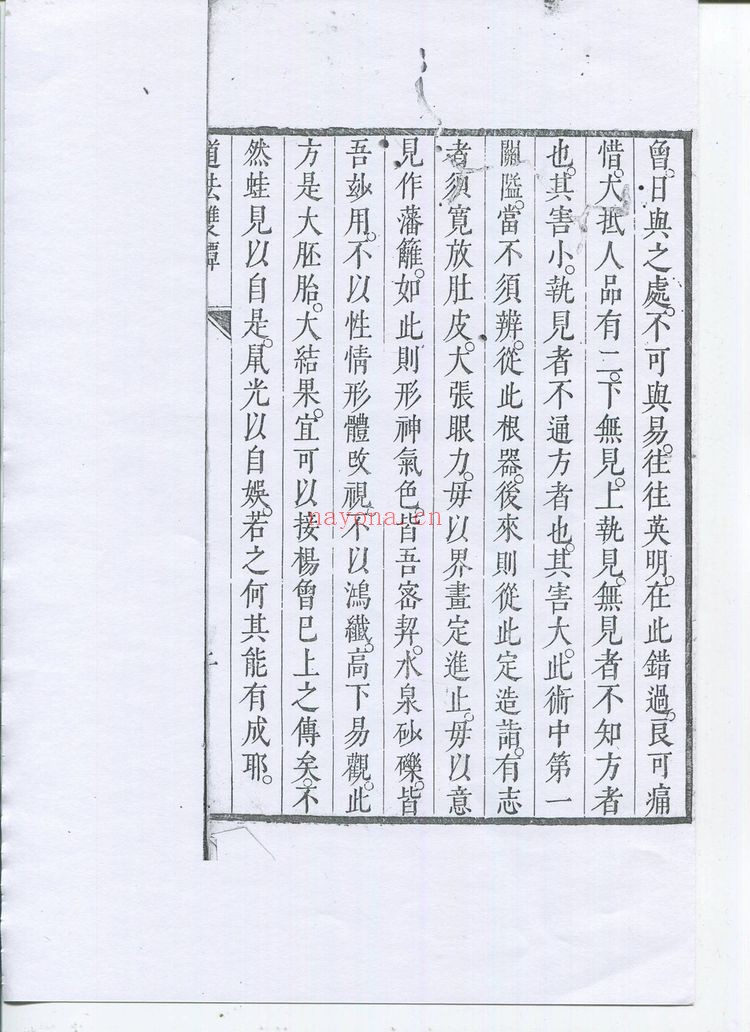 曾。日與之處。不可與易。往往英明。在此錯過。良可痛
惜。大抵人品有二。下無見。上執見。無見者不知方者
也。其害小。執見者不通方者也。其害大。此術中第一
關隘。當不須辨。從此根器。後來則從此定造詣。有志
者須寬放肚皮。大張眼力。毋以界畫定進止。毋以意
見作藩籬。如此則形神氣色。皆吾密契。水泉砂礫。皆
吾妙用。不以性情形體改視。不以鴻纖。高下易觀。此
方是大胚胎。大結果。宜可以接楊曾已上之傳矣。不
然蛙見以自是。鼠光以自娛。若之何其能有成耶。
道法雙譚
nayona.cn